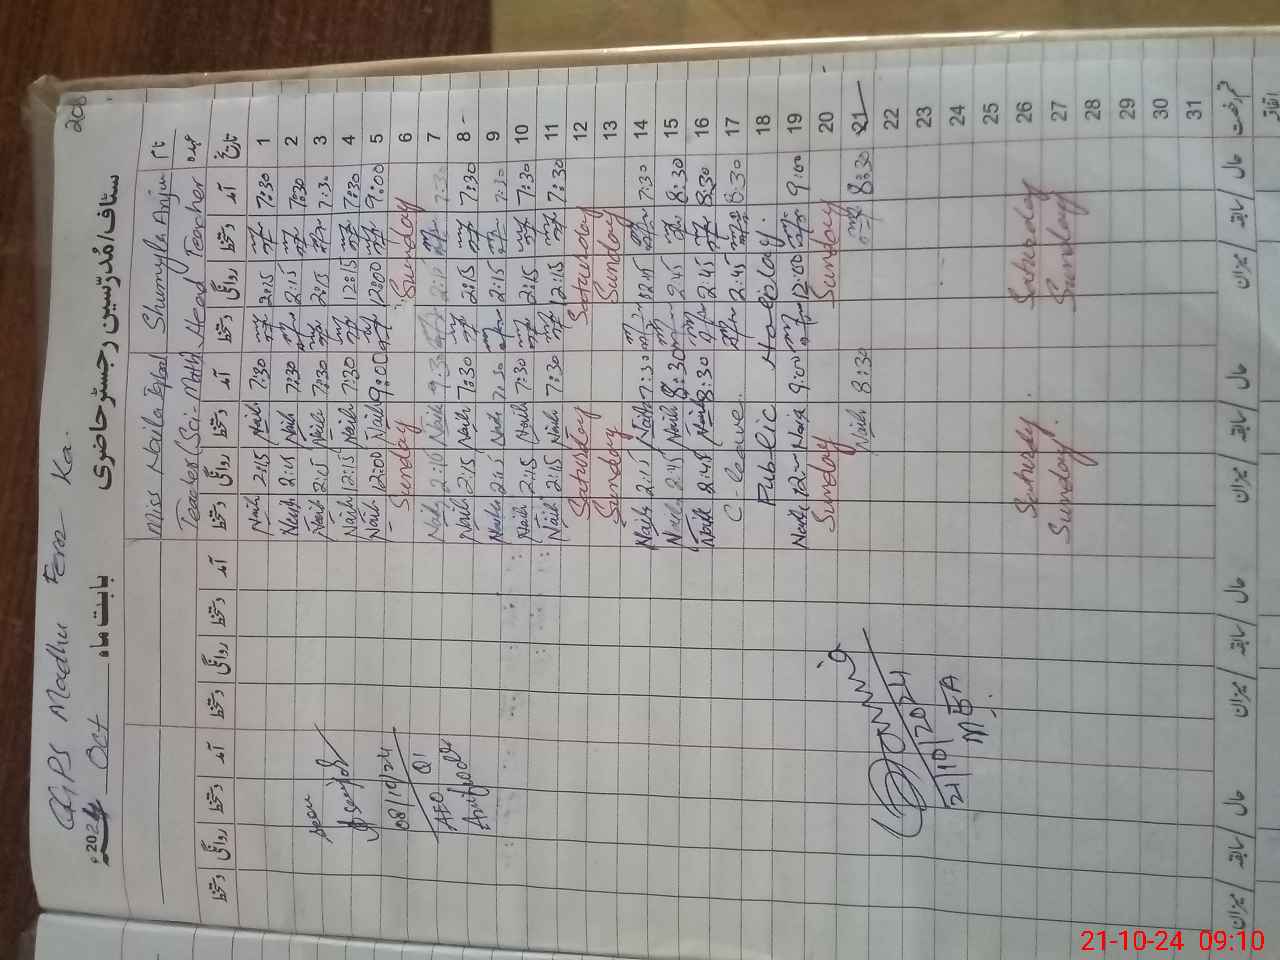 208
GGPS Madhu Fera Ka
سٹاف/مدرّسین رجسٹر حاضری بابت ماہ Oct 2024ء
نام Shumyla Anjum Miss Naila Iqbal
عہدہ Head Teacher Teacher (Sci-Math)
تاریخ آمد دستخط روانگی دستخط آمد دستخط روانگی دستخط آمد دستخط روانگی دستخط آمد دستخط روانگی دستخط
1 7:30 2:15 7:30 Naila 2:15 Naila
2 7:30 2:15 7:30 Naila 2:15 Naila
3 7:30 2:15 7:30 Naila 2:15 Naila
4 7:30 12:15 7:30 Naila 12:15 Naila
5 9:00 12:00 9:00 Naila 12:00 Naila
6 Sunday Sunday
7 7:30 2:15 Naila 2:15 Naila
8 7:30 2:15 7:30 Naila 2:15 Naila
9 7:30 2:15 7:30 Naila 2:15 Naila
10 7:30 2:15 7:30 Naila 2:15 Naila
11 7:30 12:15 7:30 Naila 2:15 Naila
12 Saturday Saturday
13 Sunday Sunday
14 7:30 7:30 Naila 2:15 Naila
15 8:30 2:45 8:30 Naila 2:45 Naila
16 8:30 2:45 8:30 Naila 2:45 Naila
17 8:30 2:45 C-leave
18 Public Holiday
19 9:00 12:00 9:00 Naila 12 Naila
20 Sunday Sunday
21 8:30 8:30 Naila
22
23
24
25
26 Saturday Saturday
27 Sunday Sunday
28
29
30
31
قسم رخصت حال سابقہ میزان حال سابقہ میزان حال سابقہ میزان حال سابقہ میزان
seen
08/10/24
AEO
21/10/2024
MEA
21-10-24 09:10